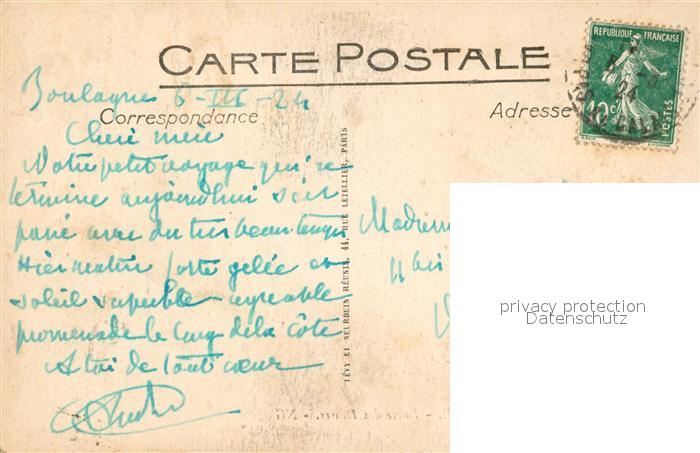 CARTE POSTALE
RÉPUBLIQUE FRANÇAISE
10 c
POSTES
24
Boulogne 6-III-24
Correspondance
Adresse
Votre petit voyage qui se
termine aujourdhui s'est
passé avec du tres beau temps
Hier matin forte gelée et
soleil superbe - agreable
promenade le long de la côte
A toi de tout cœur
LÉVY ET NEURDEIN RÉUNIS, 44, RUE LETELLIER, PARIS
11 bis
privacy protection
Datenschutz